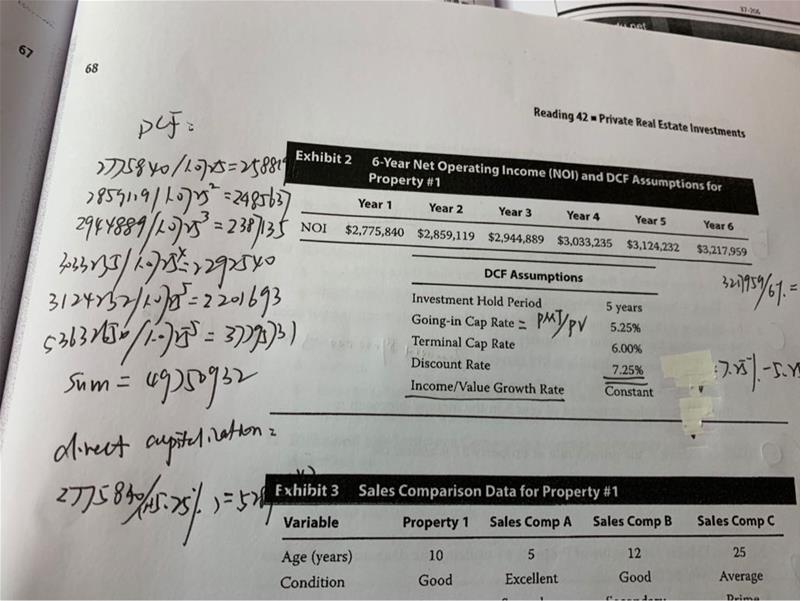 37-206
67
68
Reading 42 ■ Private Real Estate Investments
DCF:
2775840/1.0725=258819
2859119/1.0725²=2485637
2944889/1.0725³=2387135
3033235/1.0725⁴=2292540
3124232/1.0725⁵=2201693
/1.0725⁵=37795731
Sum=49750932
direct capitalization=
Exhibit 2 6-Year Net Operating Income (NOI) and DCF Assumptions for
Property #1
Year 1 Year 2 Year 3 Year 4 Year 5 Year 6
NOI $2,775,840 $2,859,119 $2,944,889 $3,033,235 $3,124,232 $3,217,959
DCF Assumptions
Investment Hold Period 5 years
Going-in Cap Rate = PMT/PV 5.25%
Terminal Cap Rate 6.00%
Discount Rate 7.25%
Income/Value Growth Rate Constant
3217959/6%=
7.25%-5.25
Exhibit 3 Sales Comparison Data for Property #1
Variable Property 1 Sales Comp A Sales Comp B Sales Comp C
Age (years) 10 5 12 25
Condition Good Excellent Good Average
Prime